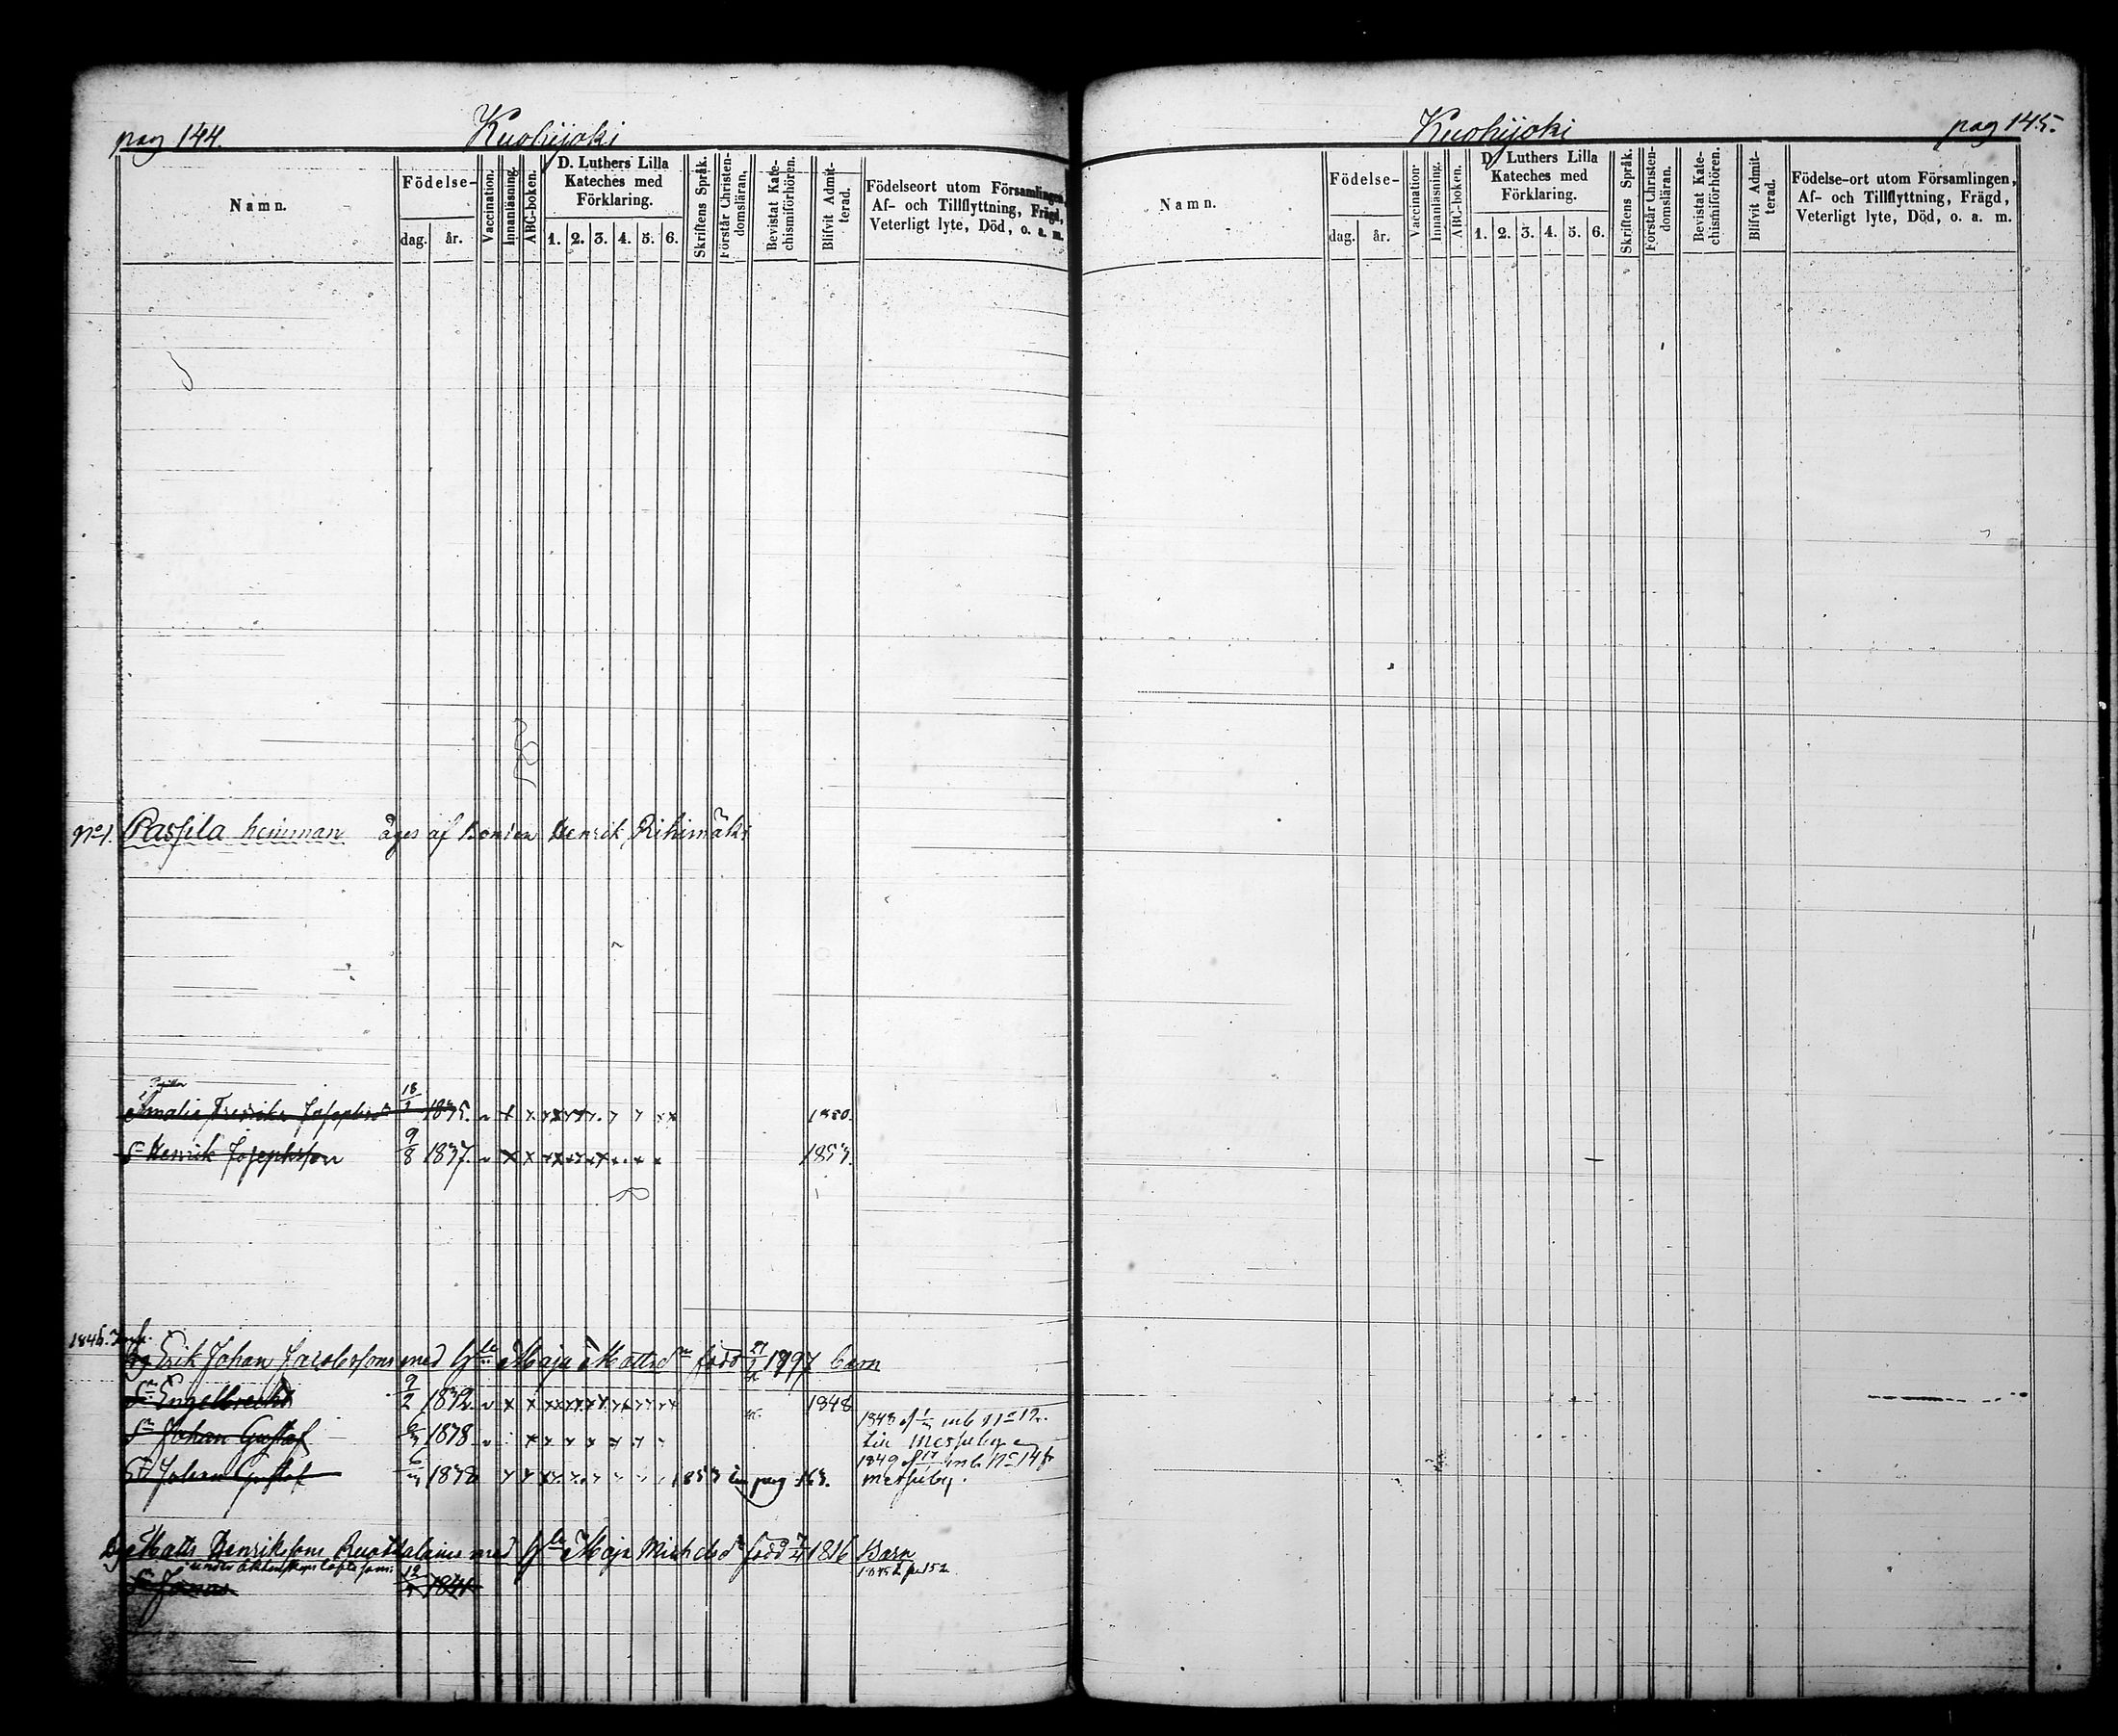 pag 144.
Kuohijoki
Namn.
Födelse-
dag. år.
Vaccination.
Innanläsning.
ABC-boken.
D. Luthers Lilla
Kateches med
Förklaring.
1. 2. 3. 4. 5. 6.
Skriftens Språk.
Förstår Christen-
domsläran.
Bevistat Kate-
chismiförhören.
Blifvit Admit-
terad.
Födelseort utom Församlingen,
Af- och Tillflyttning, Frägd,
Veterligt lyte, Död, o. a. m.
No 1. Passila hemman äges af bonden Henrik Rihimäki
Amalia Fredrika Josephsdr 18/1 1835. 1850.
Sn Henrik Josephsson 9/8 1837. 1853.
1846.
Erik Johan Jacobssons med Hu Maja Mattsdr född 1797 barn
Sn Engelbrecht 9/2 1832 1848
Sn Johan Gustaf 1838 1848 no 12.
till Messuby
Sn Johan Gustaf 1838 1853 in pag 163. 1849 No 14 fr
Messuby.
Matts Henrikssons med Maja Michelsdr född 1816 Barn
Sn Jonas 12 1841 p. 152
Kuohijoki
pag 145.
Namn.
Födelse-
dag. år.
Vaccination
Innanläsning.
ABC-boken.
D. Luthers Lilla
Kateches med
Förklaring.
1. 2. 3. 4. 5. 6.
Skriftens Språk.
Förstår Christen-
domsläran.
Bevistat Kate-
chismiförhören.
Blifvit Admit-
terad.
Födelse-ort utom Församlingen,
Af- och Tillflyttning, Frägd,
Veterligt lyte, Död, o. a. m.